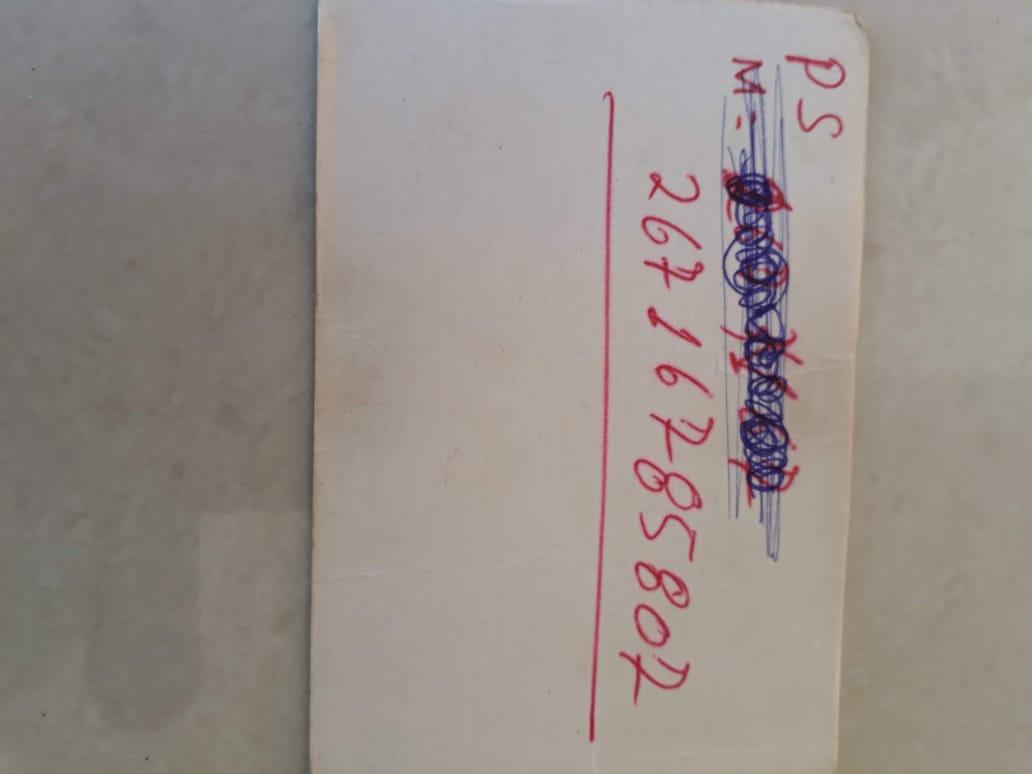 PS
M:
267 167-85807